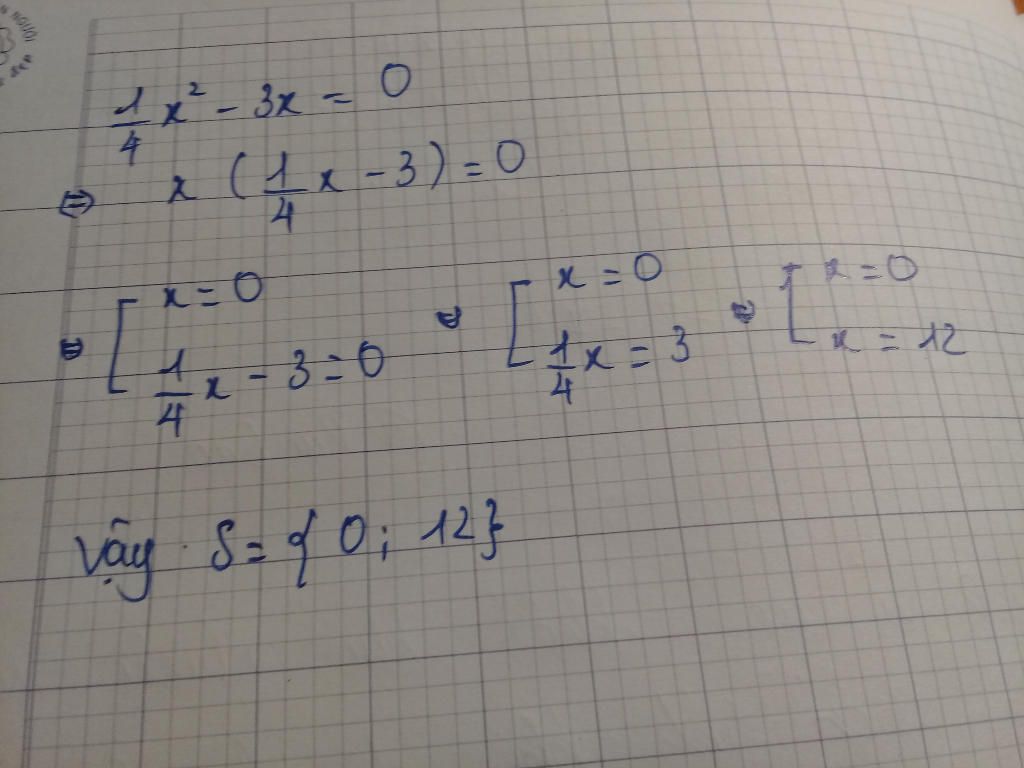 1/4 x² - 3x = 0
⇔ x (1/4 x - 3) = 0
⇔ [ x = 0 ⇔ [ x = 0 ⇔ [ x = 0
1/4 x - 3 = 0 1/4 x = 3 x = 12
Vậy S = { 0 ; 12 }